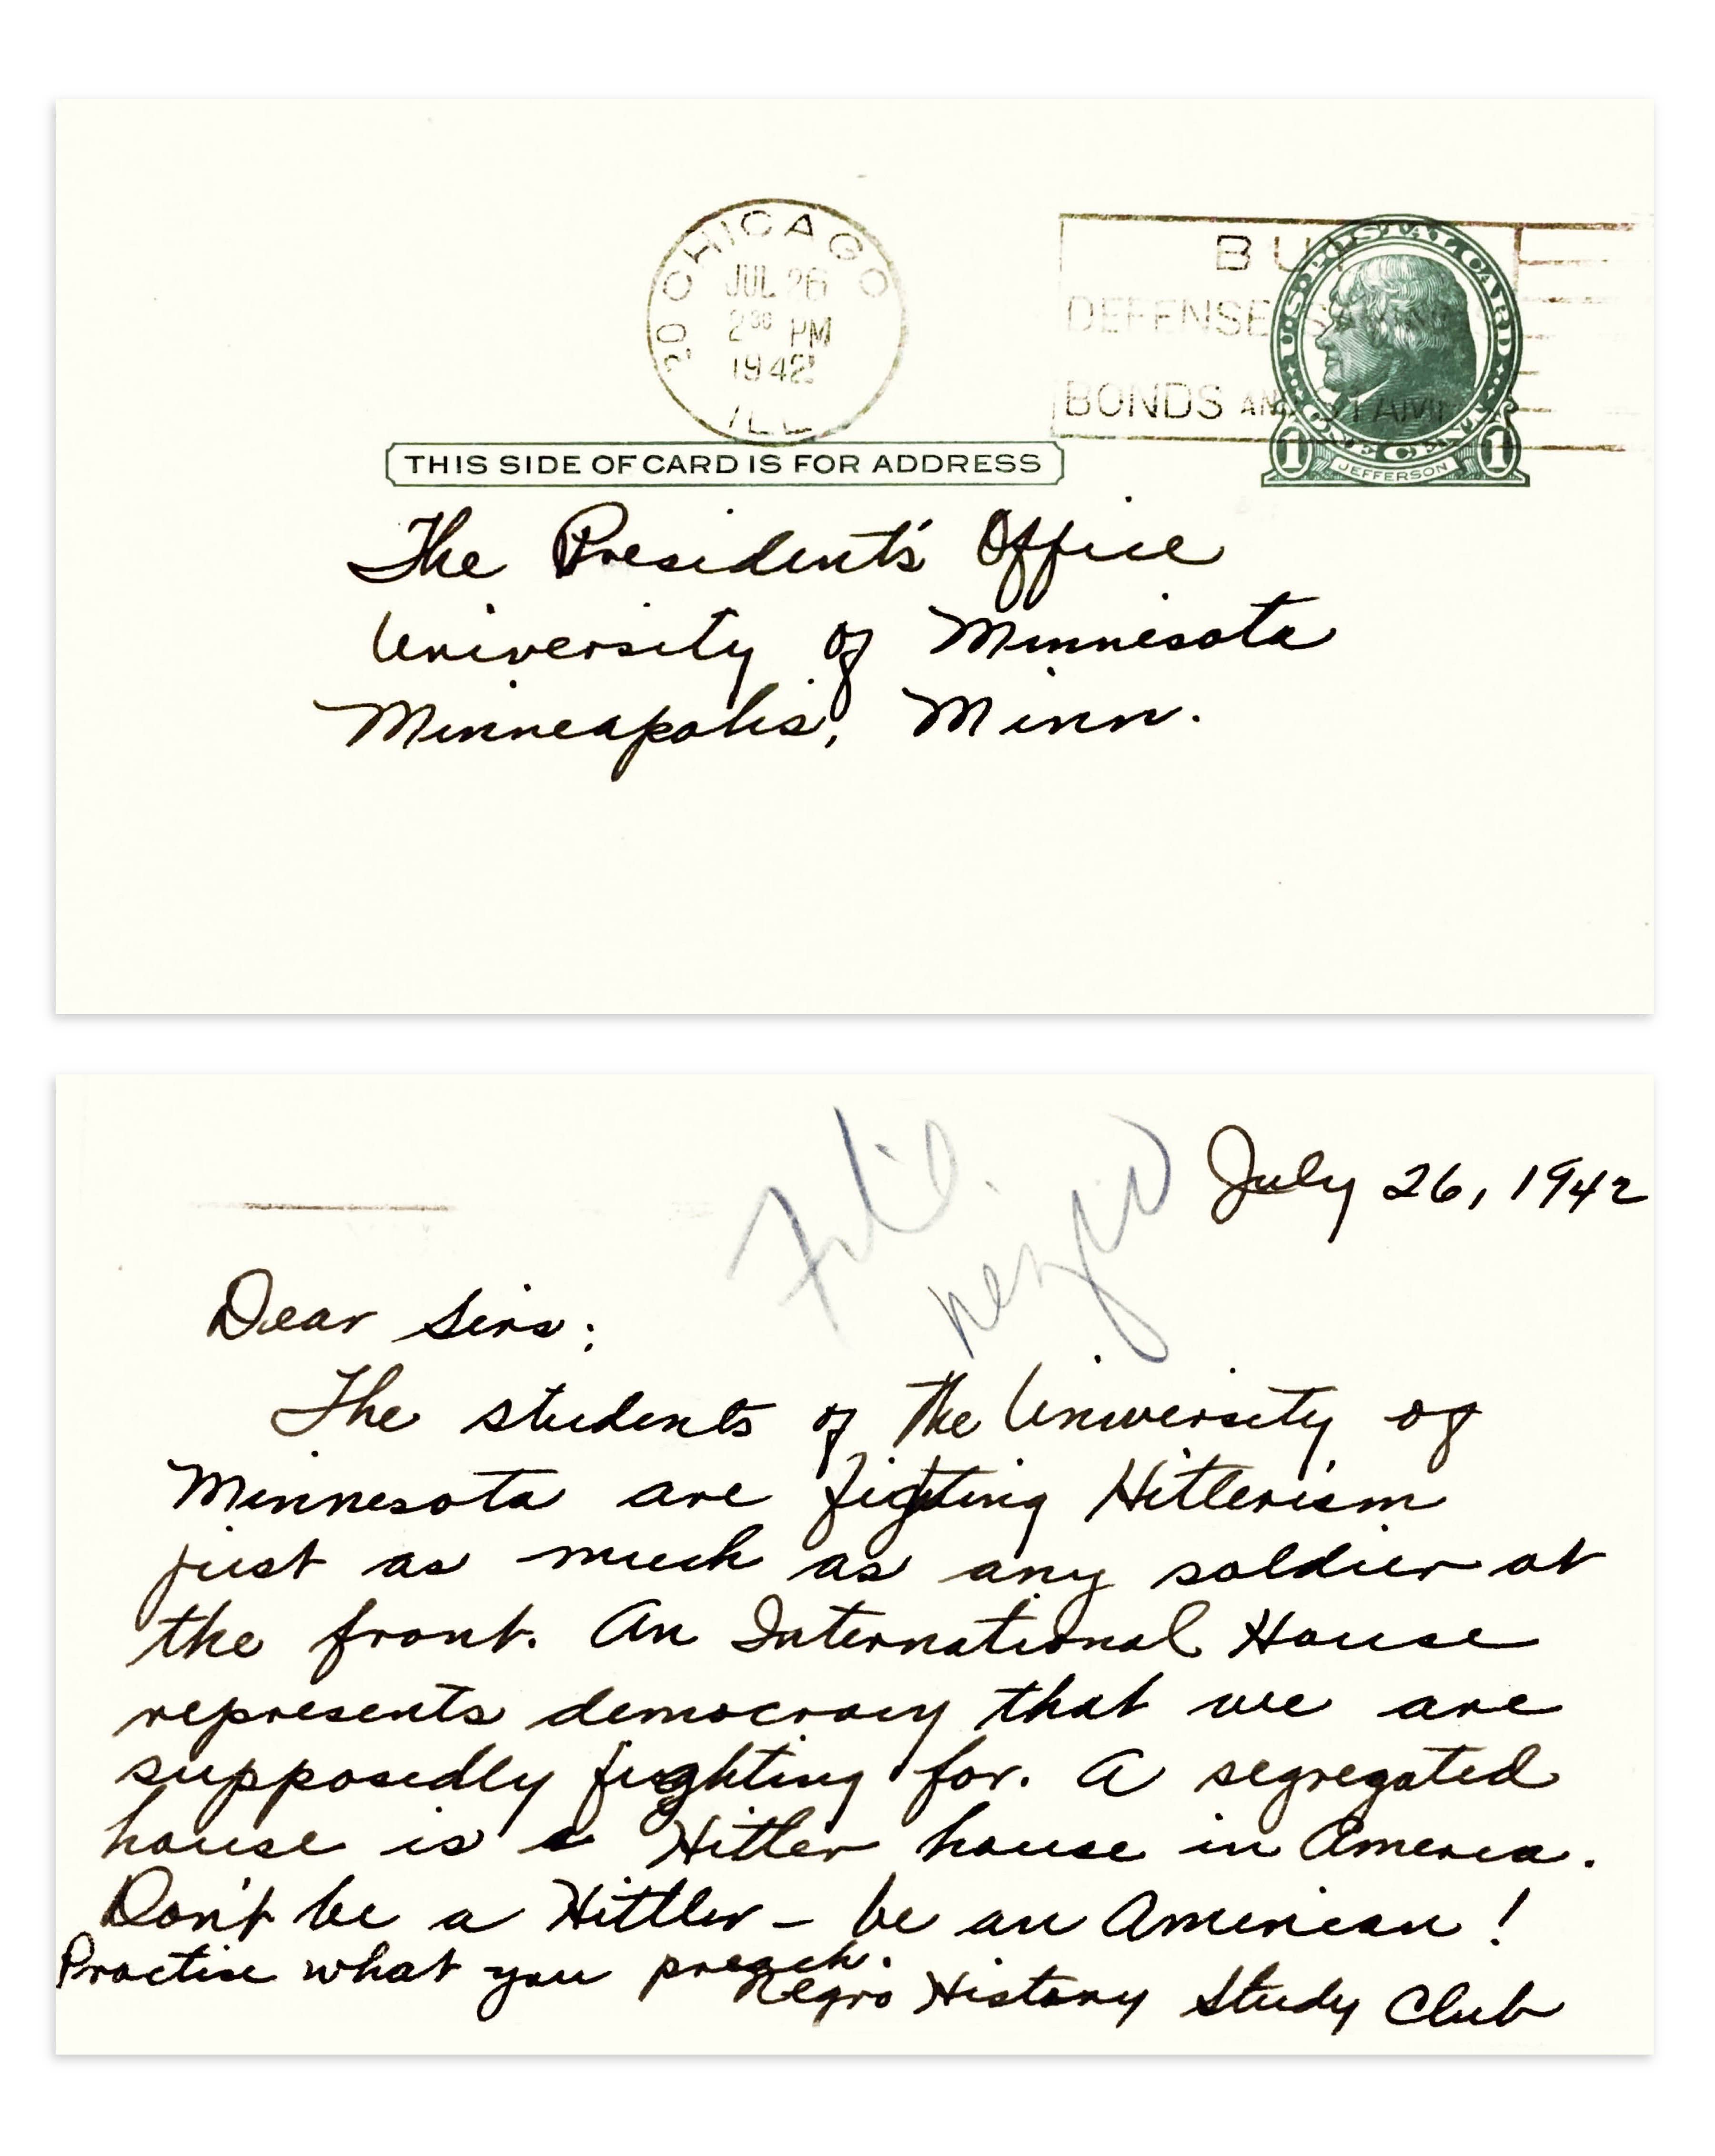 20 CHICAGO ILL
JUL 26
2 30 PM
1942
BUY
DEFENSE SAVINGS
BONDS AND STAMPS
U.S. POSTAL CARD
1 ONE CENT 1
JEFFERSON
THIS SIDE OF CARD IS FOR ADDRESS
The President's Office
University of Minnesota
Minneapolis, Minn.
File
negro
July 26, 1942
Dear Sirs:
The students of the University of
Minnesota are fighting Hitlerism
just as much as any soldier at
the front. An International House
represents democracy that we are
supposedly fighting for. A segregated
house is a Hitler house in America.
Don't be a Hitler – be an American!
Practise what you preach.
Negro History Study Club